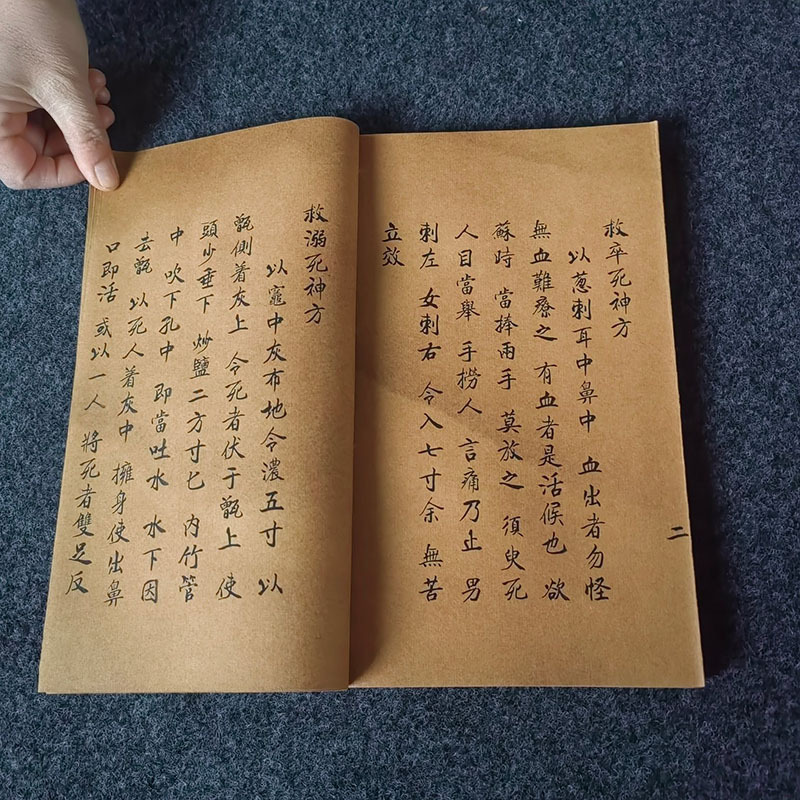 救卒死神方
以葱刺耳中鼻中 血出者勿怪
無血難療之 有血者是活候也 欲
蘇時 當捧兩手 莫放之 須臾死
人目當舉 手捞人 言痛乃止 男
刺左 女刺右 令入七寸余 無苦
立效
二
救溺死神方
以竈中灰布地令濃五寸 以
甑側着灰上 令死者伏于甑上 使
頭少垂下 炒鹽二方寸匕 内竹管
中 吹下孔中 即當吐水 水下因
去甑 以死人着灰中 擁身使出鼻
口即活 或以一人 將死者雙足反